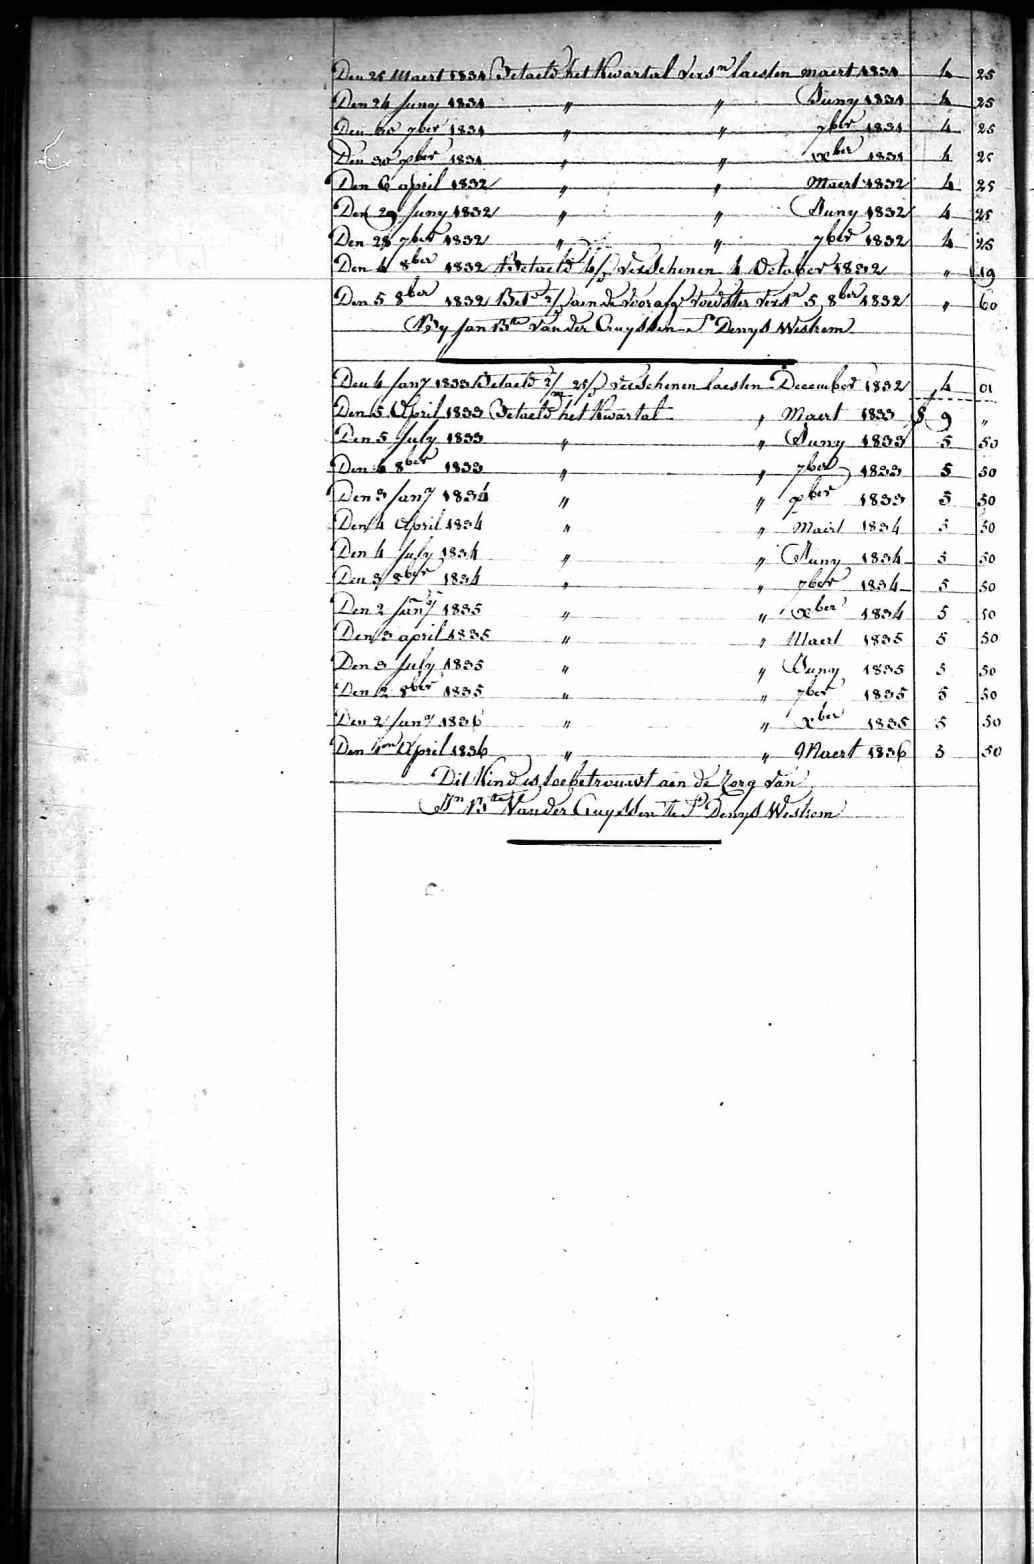 Den 25 Maert 1831 Betaeld het Kwartal vers^n laesten maert 1831 4 25
Den 24 Juny 1831 " " Juny 1831 4 25
Den 30 7ber 1831 " " 7ber 1831 4 25
Den 30 xber 1831 " " xber 1831 4 25
Den 6 april 1832 " " Maert 1832 4 25
Den 29 Juny 1832 " " Juny 1832 4 25
Den 28 7ber 1832 " " 7ber 1832 4 25
Den 4 8ber 1832 Betaeld 4/d verschenen 4 October 1832 " 19
Den 5 8ber 1832 Bet^d aen de voedster vers^n 5 8ber 1832 " 60
By Jan B^te Van der Cruyssen S^t Denys Westrem
Den 4 Jan^y 1833 Betaeld 2/m 25/d verschenen laesten December 1832 4 01
Den 5 April 1833 Betaeld het Kwartal " Maert 1833 9 "
Den 5 July 1833 " " Juny 1833 5 50
Den 4 8ber 1833 " " 7ber 1833 5 50
Den 3 Jan^y 1834 " " xber 1833 5 50
Den 4 April 1834 " " Maert 1834 5 50
Den 4 July 1834 " " Juny 1834 5 50
Den 3 8ber 1834 " " 7ber 1834 5 50
Den 2 Jan^y 1835 " " xber 1834 5 50
Den 3 april 1835 " " Maert 1835 5 50
Den 3 July 1835 " " Juny 1835 5 50
Den 2 8ber 1835 " " 7ber 1835 5 50
Den 2 Jan^y 1836 " " xber 1835 5 50
Den 1^en April 1836 " " Maert 1836 5 50
Dit Kind is toebetrouwt aen de Zorg van
Jn B^te Van der Cruyssen te S^t Denys Westrem